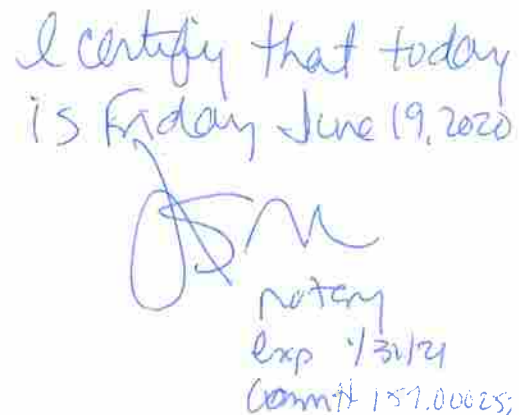 I certify that today
is Friday June 19, 2020
notary
exp 1/31/21
Comm#